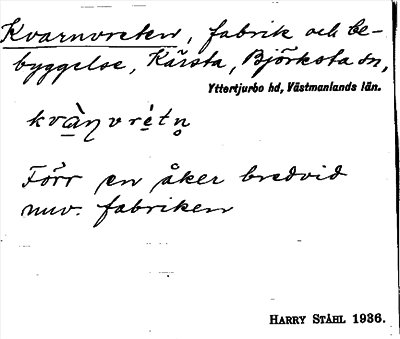 Kvarnvreten, fabrik och be-
byggelse, Kärsta, Björksta sn,
Yttertjurbo hd, Västmanlands län.
kvàṇvrètn̥
Förr en åker bredvid
nuv. fabriken
HARRY STÅHL 1936.